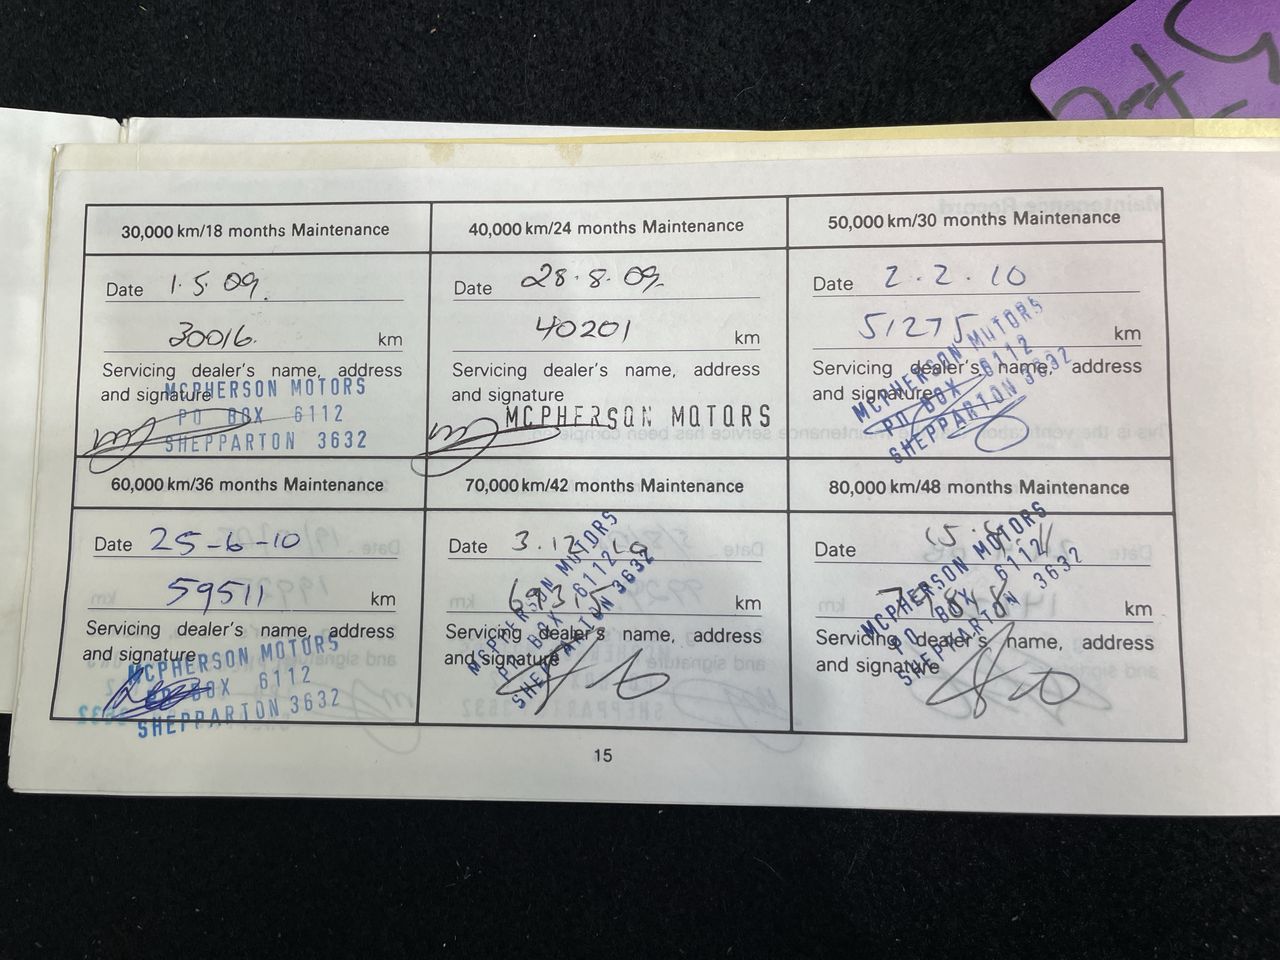 30,000 km/18 months Maintenance
Date 1.5.09.
30016. km
Servicing dealer's name, address
and signature
MCPHERSON MOTORS
PO BOX 6112
SHEPPARTON 3632
40,000 km/24 months Maintenance
Date 28.8.09.
40201 km
Servicing dealer's name, address
and signature
MCPHERSON MOTORS
50,000 km/30 months Maintenance
Date 2.2.10
51275 km
Servicing dealer's name, address
and signature
MCPHERSON MOTORS
PO BOX 6112
SHEPPARTON 3632
60,000 km/36 months Maintenance
Date 25-6-10
59511 km
Servicing dealer's name, address
and signature
MCPHERSON MOTORS
PO BOX 6112
SHEPPARTON 3632
70,000 km/42 months Maintenance
Date 3.12.10
69315 km
Servicing dealer's name, address
and signature
MCPHERSON MOTORS
PO BOX 6112
SHEPPARTON 3632
80,000 km/48 months Maintenance
Date
km
Servicing dealer's name, address
and signature
MCPHERSON MOTORS
PO BOX 6112
SHEPPARTON 3632
15